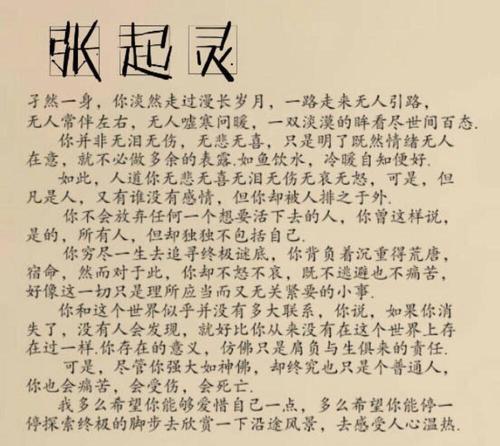 张起灵
孑然一身，你淡然走过漫长岁月，一路走来无人引路，
无人常伴左右，无人嘘寒问暖，一双淡漠的眸看尽世间百态.
你并非无泪无伤，无悲无喜，只是明了既然情绪无人
在意，就不必做多余的表露.如鱼饮水，冷暖自知便好.
如此，人道你无悲无喜无泪无伤无哀无怒，可是，但
凡是人，又有谁没有感情，但你却被人排之于外.
你不会放弃任何一个想要活下去的人，你曾这样说，
是的，所有人，但却独独不包括自己.
你穷尽一生去追寻终极谜底，你背负着沉重得荒唐，
宿命，然而对于此，你却不怒不哀，既不逃避也不痛苦，
好像这一切只是理所应当而又无关紧要的小事.
你和这个世界似乎并没有多大联系，你说，如果你消
失了，没有人会发现，就好比你从来没有在这个世界上存
在过一样.你存在的意义，仿佛只是肩负与生俱来的责任.
可是，尽管你强大如神佛，却终究也只是个普通人，
你也会痛苦，会受伤，会死亡.
我多么希望你能够爱惜自己一点，多么希望你能停一
停探索终极的脚步去欣赏一下沿途风景，去感受人心温热.